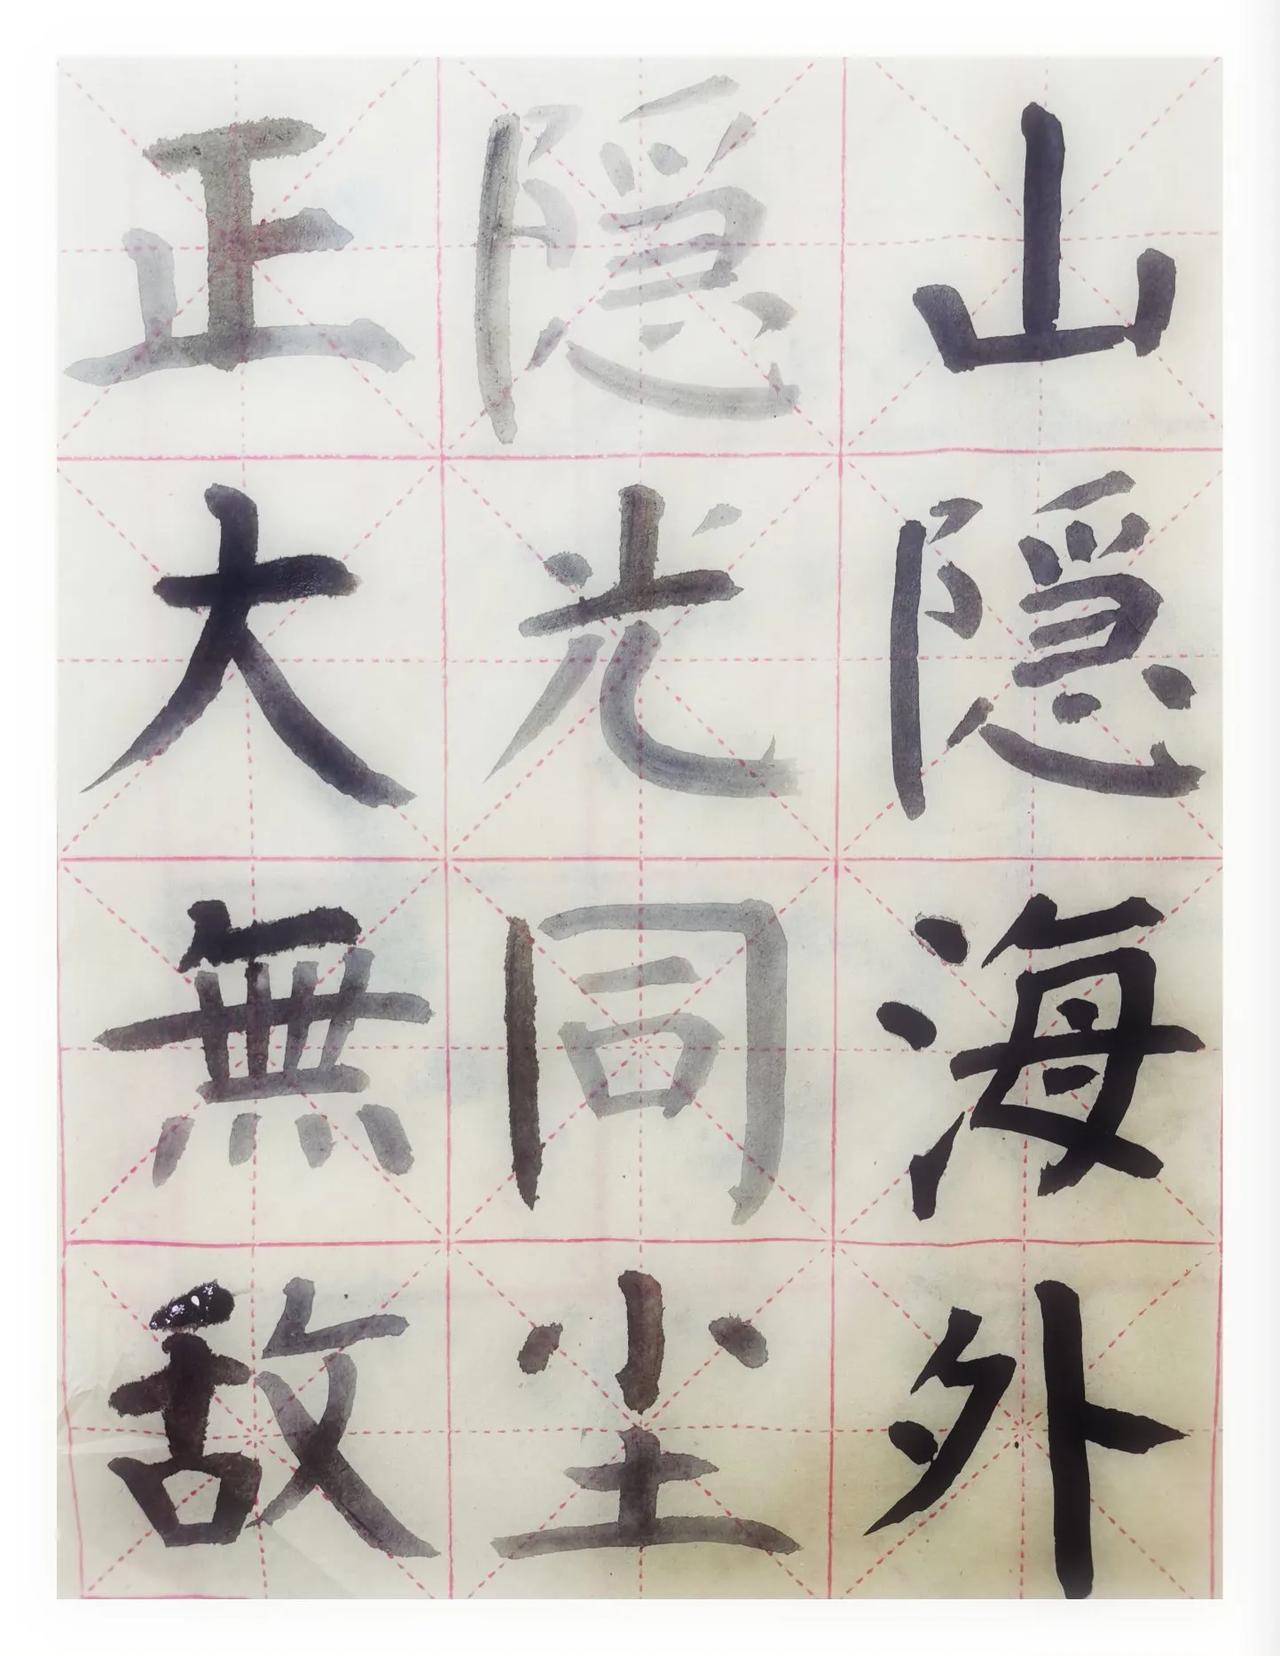 山隐海外
隐光同尘
正大無敌